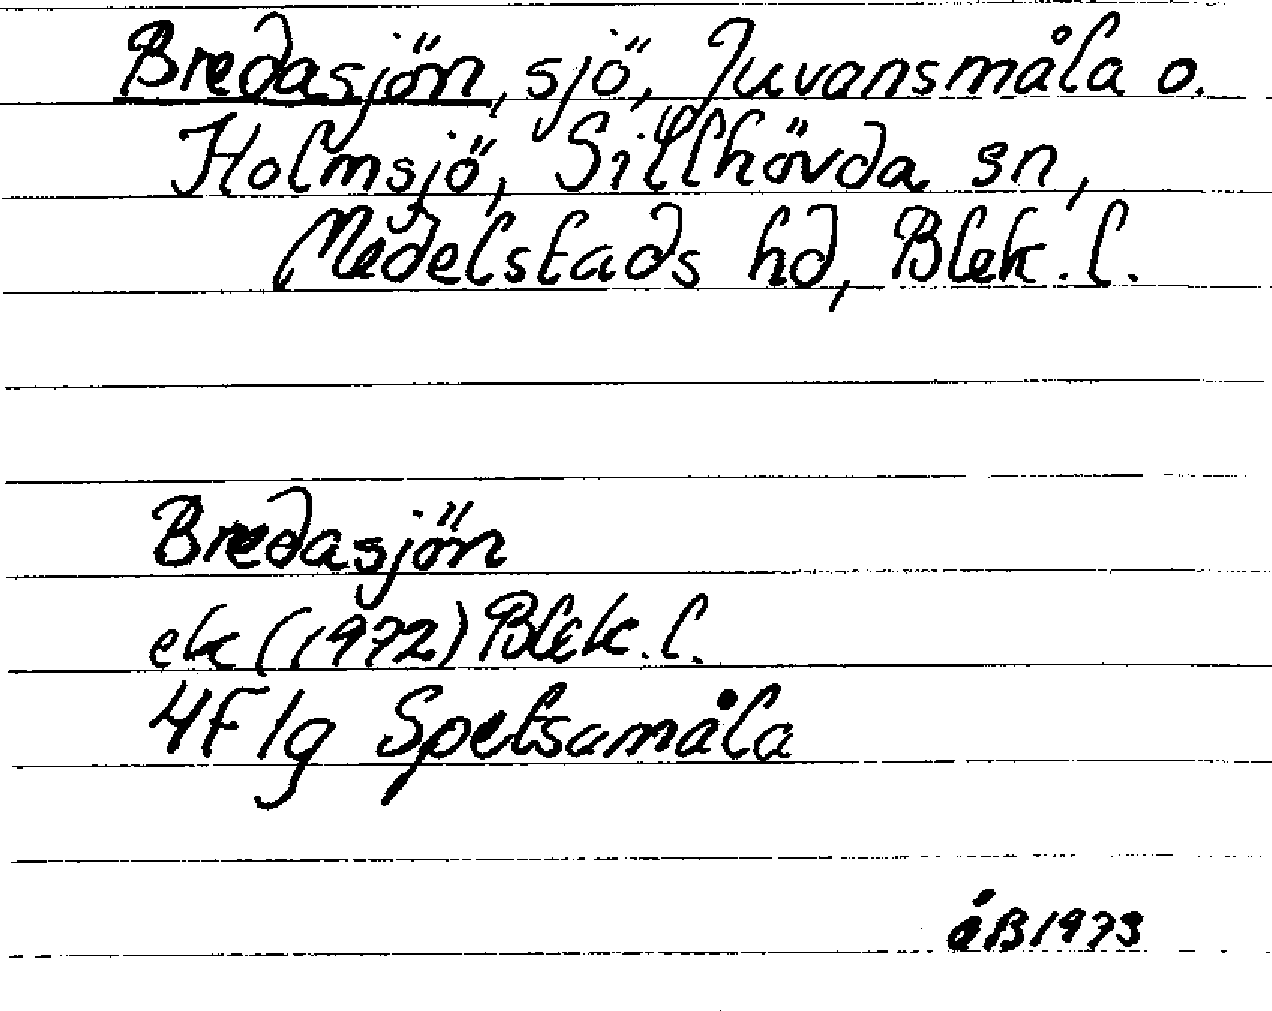 Bredasjön, sjö, Juvansmåla o.
Holmsjö, Sillhövda sn,
Medelstads hd, Blek. l.
Bredasjön
ek (1972) Blek. l.
4F 1g Spetsamåla
åB 1973